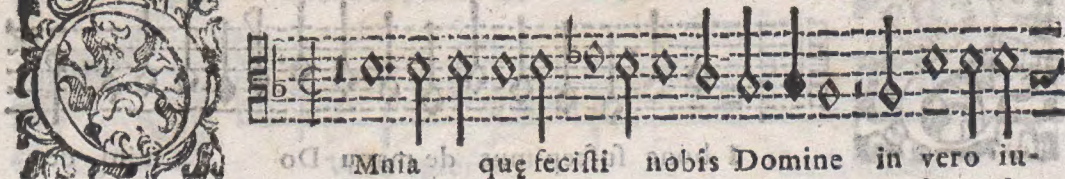 O Mnia quę fecisti nobis Domine in vero iu-